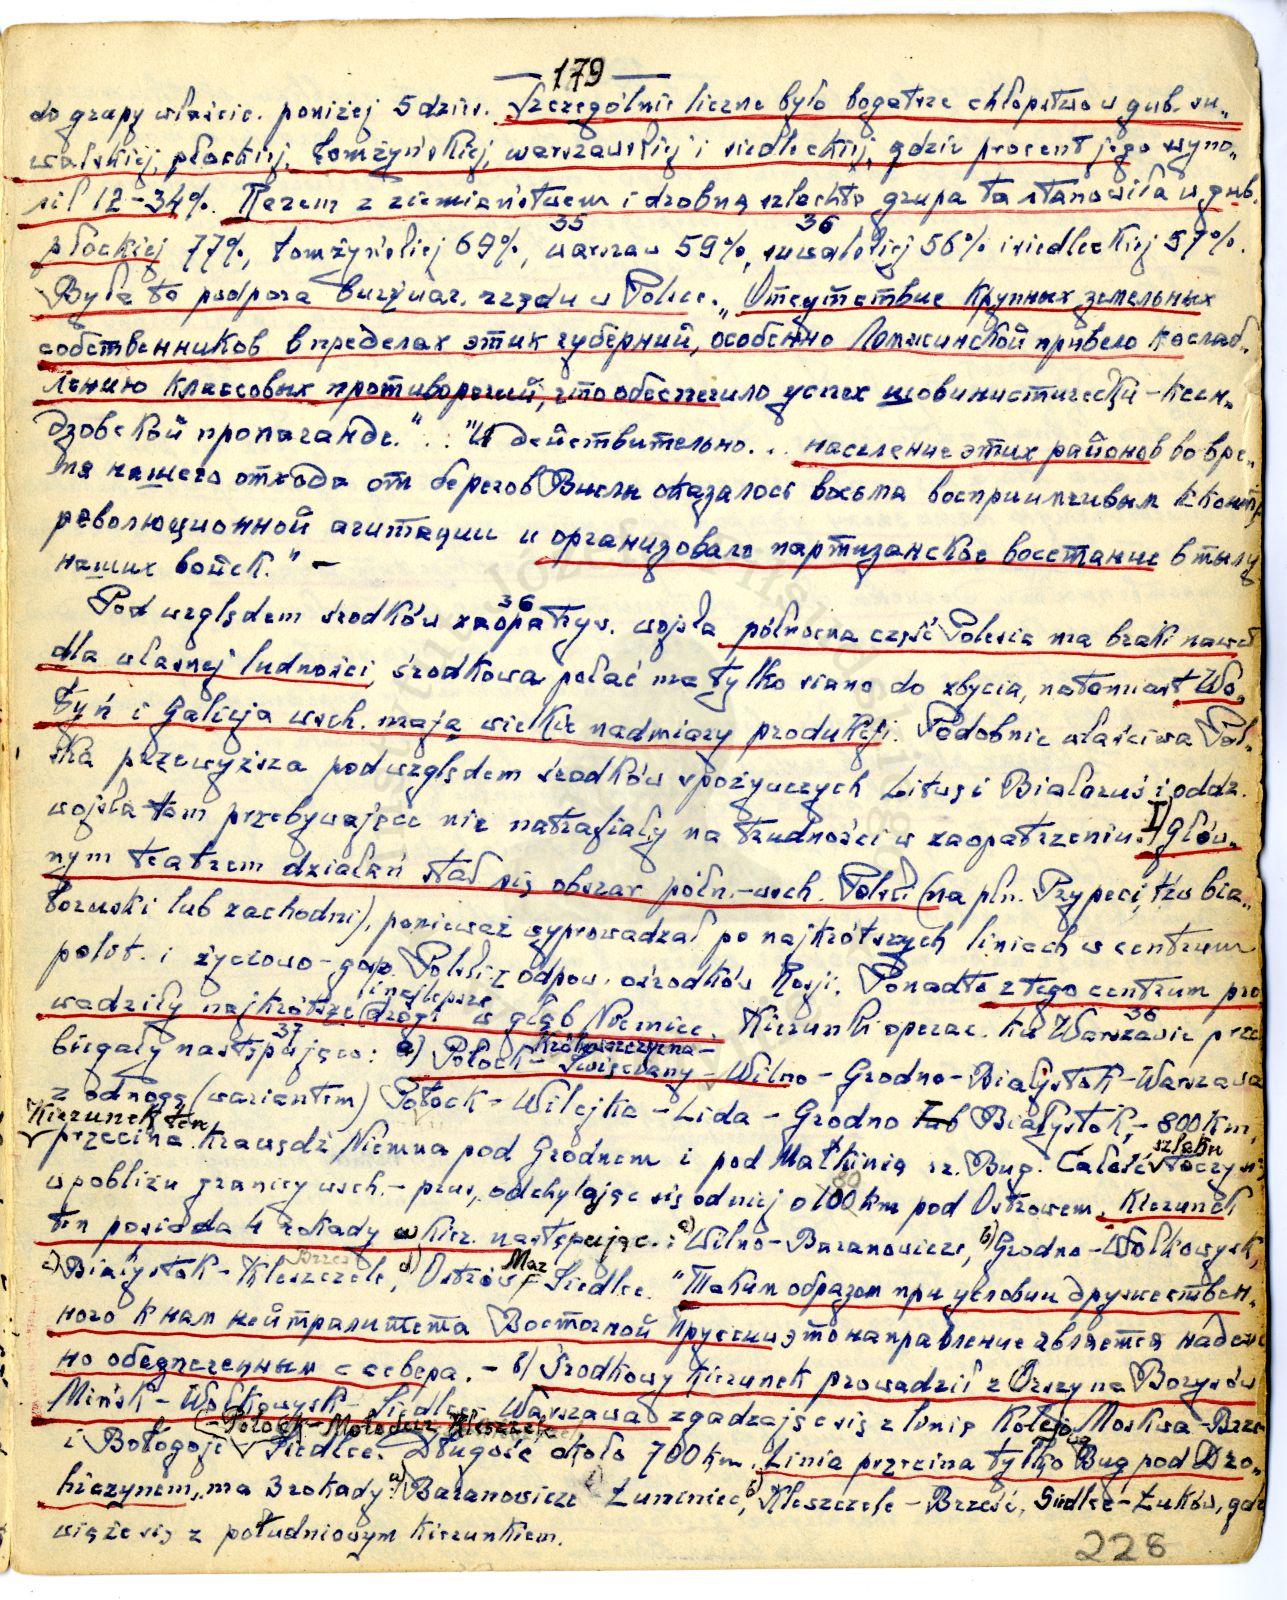 — 179 —
do grupy właścic. poniżej 5 dzies. Szczególnie liczne było bogatsze chłopstwo w gub. su„
walskiej, płockiej, łomżyńskiej, warszawskiej i siedleckiej, gdzie procent jego wyno„
sił 12–34%. Razem z ziemiaństwem i drobną szlachtą grupa ta stanowiła w gub.
płockiej 77%, łomżyńskiej 69%, 35 warszaw 59%, 36 suwalskiej 56% i siedleckiej 57%.
Była to podpora burżuaz. rządu w Polsce. „Отсутствие крупных земельных
собственников в пределах этих губерний, особенно Ломжинской привело к ослаб„
лению классовых противоречий, что обеспечило успех шовинистически-ксен„
дзовской пропаганде." .. "И действительно... население этих районов во вре„
мя нашего отхода от берегов Вислы оказалось весьма восприимчивым к контр
революционной агитации и организовало партизанское восстание в тылу
наших войск." –
Pod względem środków 36 zaopatryw. wojska północna część Polesia ma braki nawet
dla własnej ludności, środkowa połać ma tylko siano do zbycia, natomiast Wo„
łyń i Galicja wsch. mają wielkie nadmiary produkcji. Podobnie właściwa Pol„
ska przewyższa pod względem środków spożywczych Litwę i Białoruś i oddz.
wojska tam przebywające nie natrafiały na trudności w zaopatrzeniu. I) Głów„
nym teatrem działań stał się obszar półn.-wsch. Polski (na płn. Prypeci, tzw bia„
łoruski lub zachodni), ponieważ wyprowadzał po najkrótszych liniach w centrum
polit. i życiowo-gosp. Polski z odpow. ośrodków Rosji. Ponadto z tego centrum pro
wadziły najkrótsze i najlepsze drogi w głąb Niemiec. Kierunki operac. ku Warszawie 36 prze
biegały następująco: 37 a) Połock – Królewszczyzna – Święciany – Wilno – Grodno – Białystok – Warszawa
z odnogą (wariantem) Połock – Wilejka – Lida – Grodno lub Białystok, – 800 km,
Kierunek ten przecina krawędź Niemna pod Grodnem i pod Małkinią rz. Bug. Całość szlaku toczy się
w pobliżu granicy wsch.-prus, odchylając się od niej o 100 80 km pod Ostrowem. Kierunek
ten posiada 4 rokady w kier. następując.: a) Wilno – Baranowicze, b) Grodno – Wołkowysk,
c) Białystok – Kleszczele, Brześć d) Ostrów Maz – Siedlce. "Таким образом при условии дружествен„
ного к нам нейтралитета Восточной Пруссии это направление является надеж
но обеспеченным с севера. – b) Środkowy kierunek prowadził z Orszy na Borysów
Mińsk – Wołkowysk – Siedlce – Warszawa zgadzając się z linią kolejową Moskwa – Brześć
i Bołogoje – Połock – Mołodeczno – Siedlce. Długość około 700 km. Linia przecina tylko Bug pod Dro„
hiczynem, ma 3 rokady: a) Baranowicze – Łuniniec, b) Kleszczele – Brześć, Siedlce – Łuków, gdzie
wiąże się z południowym kierunkiem.
228